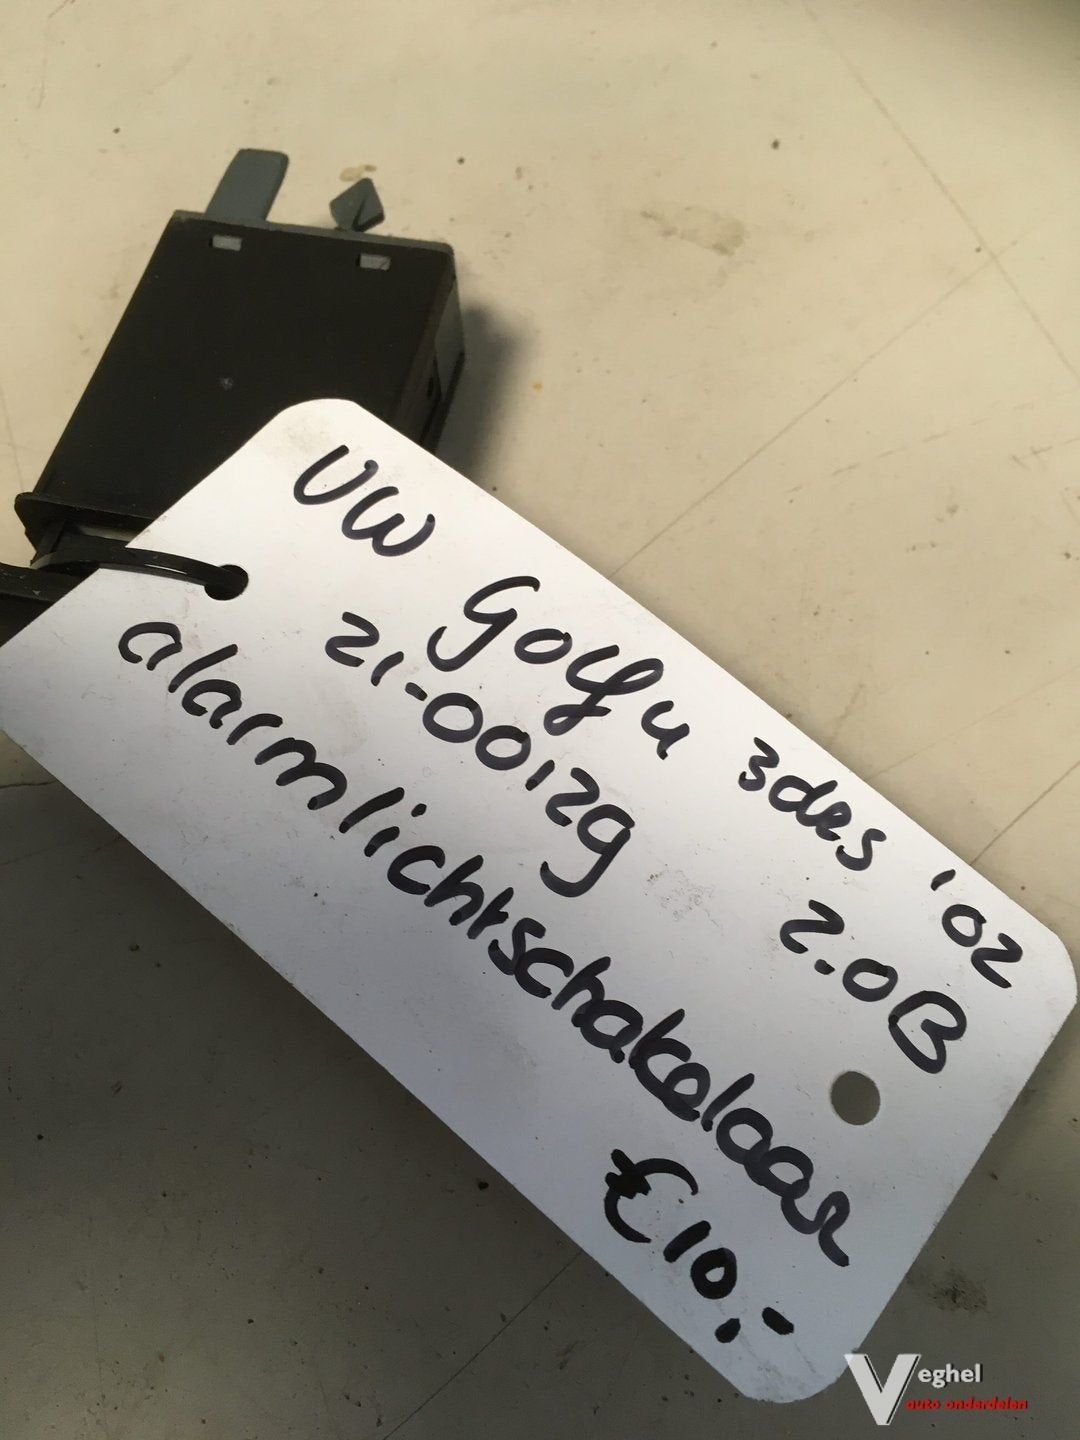 VW Golf 4 3drs '02
21-00129 2.0B
alarmlichtschakelaar
€10,-
Veghel
auto onderdelen